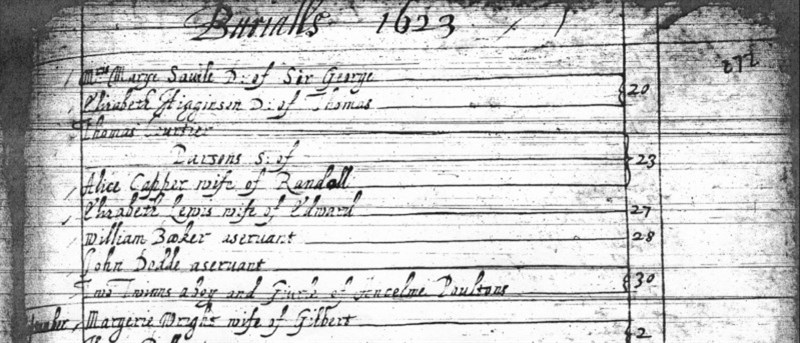 Burialls 1623
272
Mris Marye Savile D: of Sir George
Elizabeth Higginson D: of Thomas 20
Thomas Curtier
Parsons s: of 23
Alice Capper wife of Randall
Elizabeth Lewis wife of Edward 27
William Booker a servant 28
John Dodde a servant
Two Twinns a boy and Girle of Ancelme Poultons 30
Margerie Wright wife of Gilbert 2